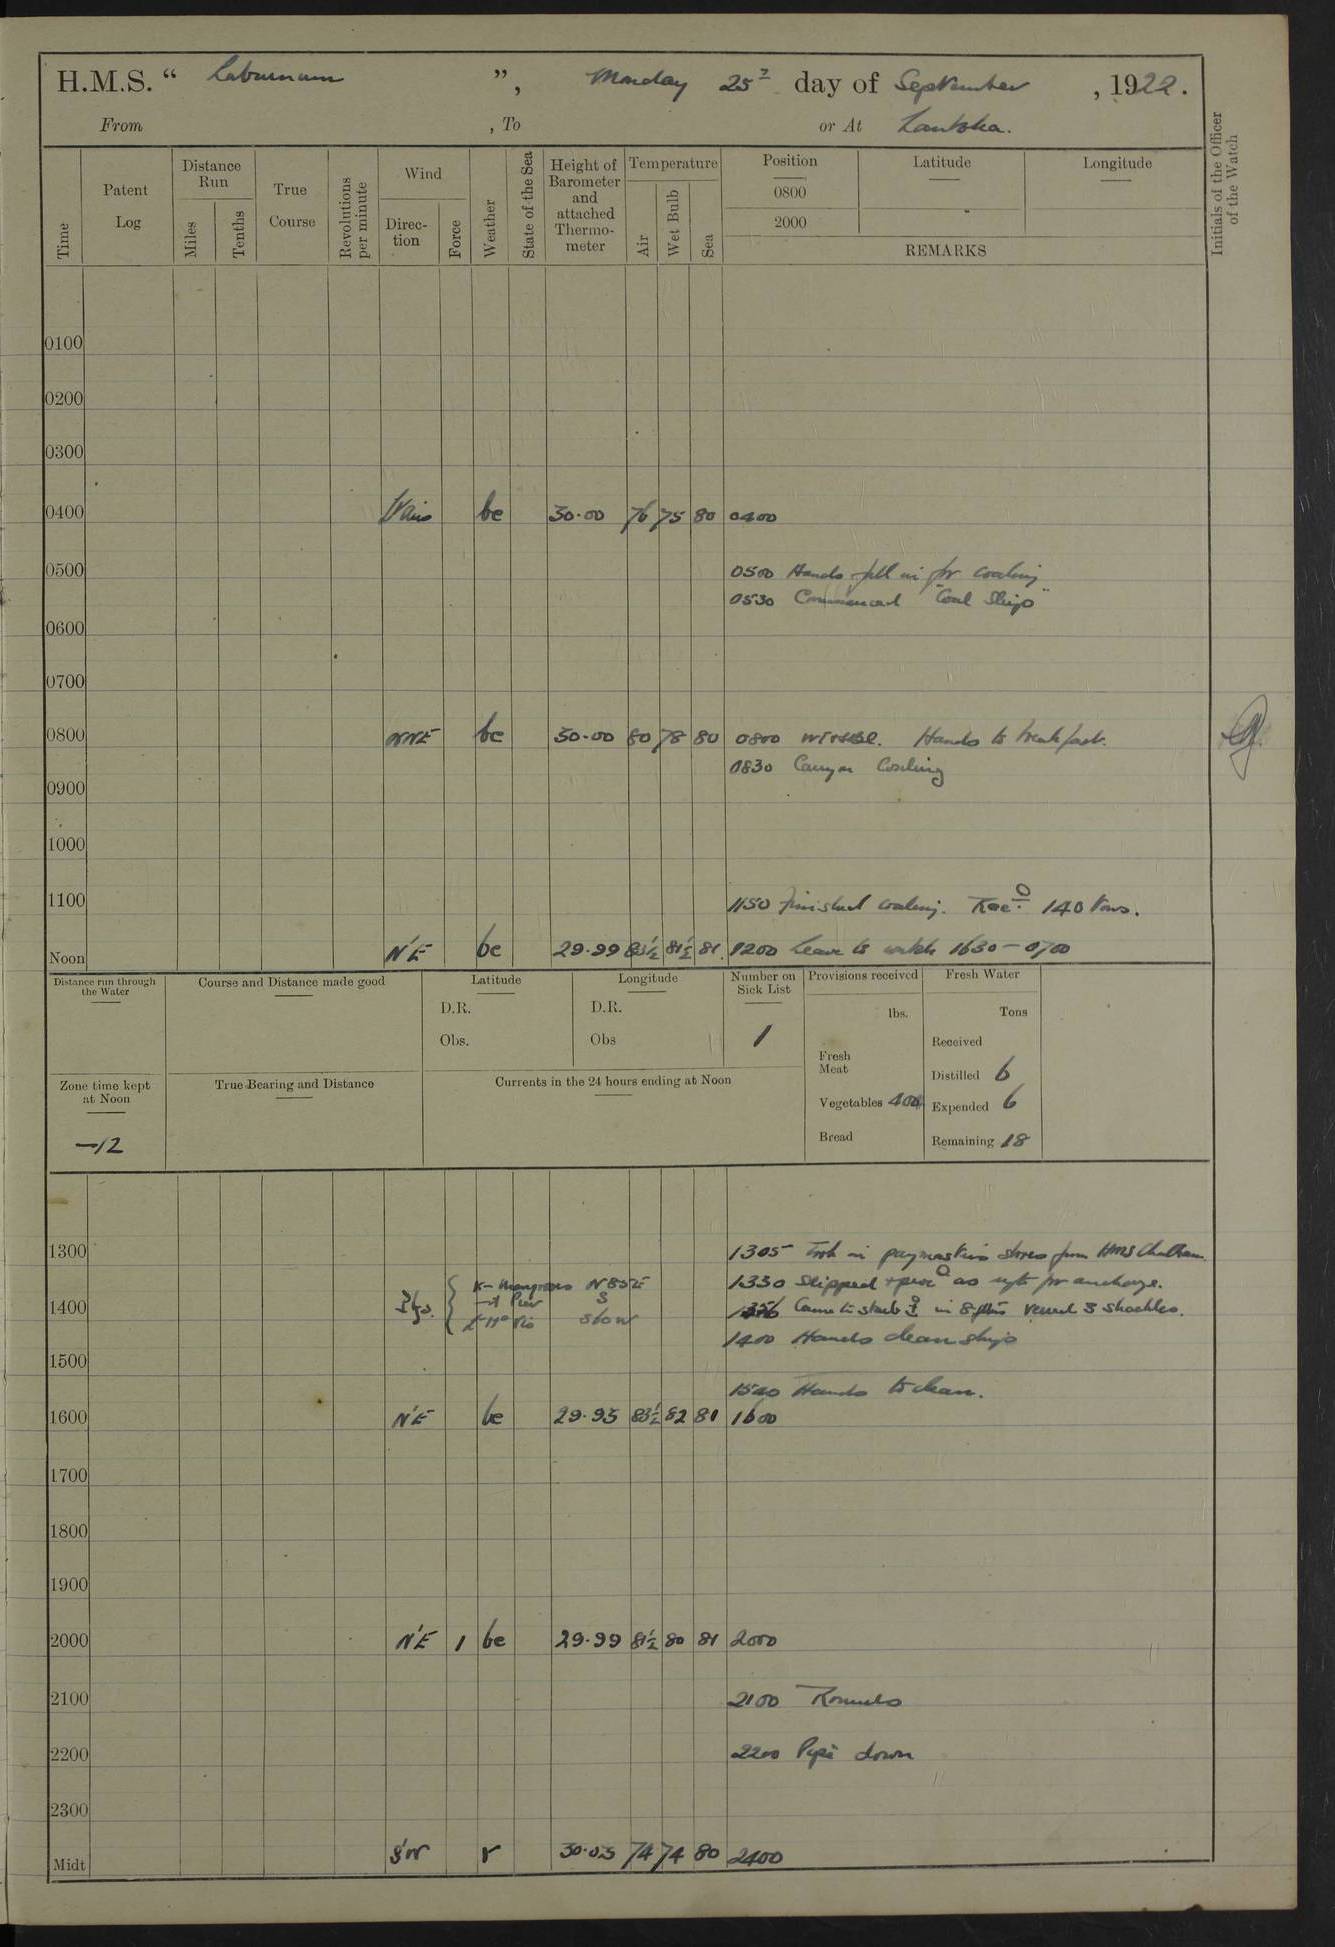 H.M.S. “ Laburnum ”, Monday 25th day of September, 1922.
From , To or At Lautoka.
Time
Patent Log
Distance Run
Miles
Tenths
True Course
Revolutions per minute
Wind
Direction
Force
Weather
State of the Sea
Height of Barometer and attached Thermometer
Temperature
Air
Wet Bulb
Sea
Position
0800
2000
Latitude
Longitude
REMARKS
Initials of the Officer of the Watch
0100
0200
0300
0400 bc 30·00 76 75 80 0400
0500 0500 Hands fell in for coaling
0530 Commenced "Coal Ship"
0600
0700
0800 NNE bc 30·00 80 78 80 0800 Hands to breakfast.
0830 Carry on Coaling
0900
1000
1100 1150 finished coaling. Rec'd 140 tons.
Noon N'E bc 29·99 83½ 81½ 81 1200 Leave to watch 1630 – 0700
Distance run through the Water
Course and Distance made good
Latitude
D.R.
Obs.
Longitude
D.R.
Obs
Number on Sick List
1
Provisions received
lbs.
Fresh Meat
Vegetables 400
Bread
Fresh Water
Tons
Received
Distilled 6
Expended 6
Remaining 18
Zone time kept at Noon
—12
True Bearing and Distance
Currents in the 24 hours ending at Noon
1300 1305 Took in paymasters stores from HMS Chatham
N 85 E
1330 Slipped + proc'd as req for anchorage.
1400 Pier S
Came to starb in 8 fms veered 3 shackles.
1400 Hands clean ship
1500 1520 Hands to clean.
1600 N'E bc 29·95 83½ 82 81 1600
1700
1800
1900
2000 N'E 1 bc 29·99 81½ 80 81 2000
2100 2100 Rounds
2200 2200 Pipe down
2300
Midt S'W r 30·03 74 74 80 2400